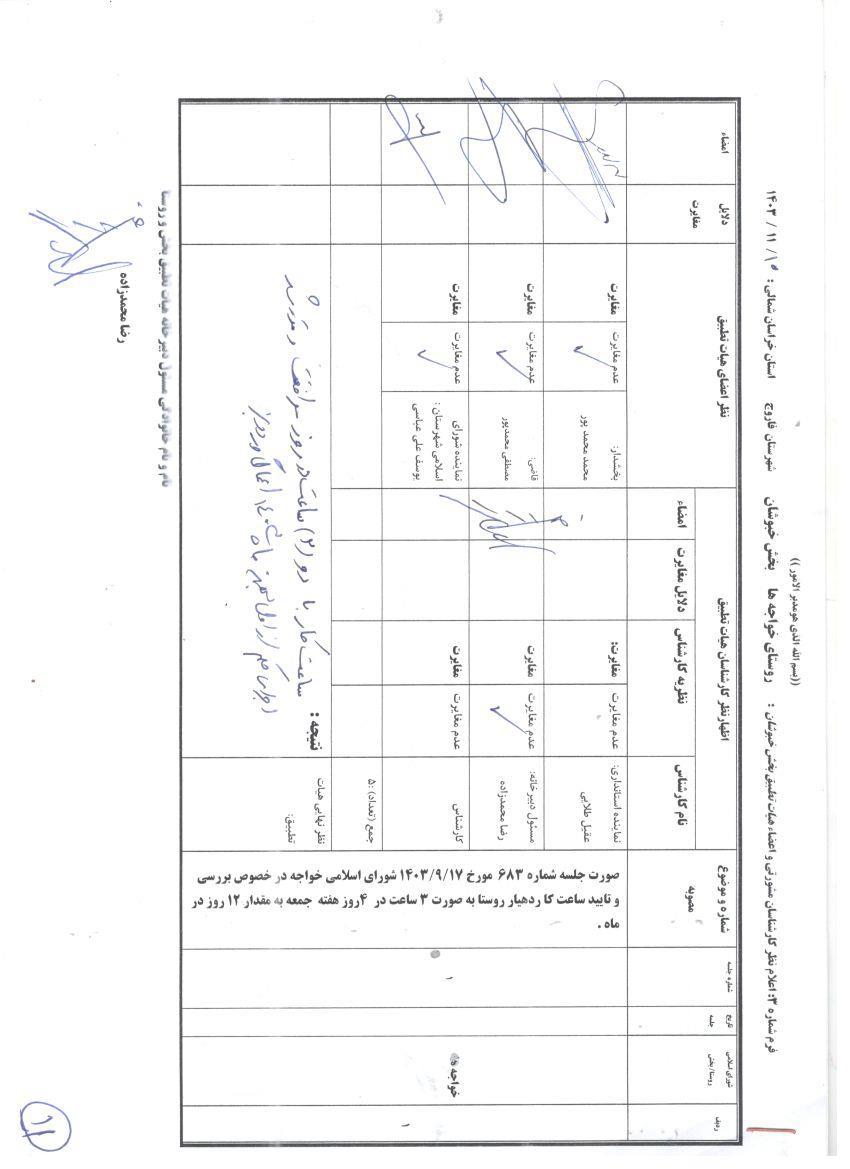 ((بسم الله الذی هومدبر الامور ))
فرم شماره ۳: اعلام نظر کارشناسان مشورتی و اعضاء هیات تطبیق بخش خبوشان :
روستای خواجه ها بخش خبوشان شهرستان فاروج استان خراسان شمالی : ۱۴۰۳ / ۱۱ / ۱۰
ردیف
شورای اسلامی روستا/ بخش
تاریخ جلسه
شماره جلسه
شماره و موضوع مصوبه
اظهارنظر کارشناسان هیات تطبیق
نظر اعضای هیات تطبیق
دلایل مغایرت
امضاء
نام کارشناس
نظریه کارشناس
دلایل مغایرت
امضاء
۱
خواجه ها
۱
صورت جلسه شماره ۶۸۳ مورخ ۱۴۰۳/۹/۱۷ شورای اسلامی خواجه در خصوص بررسی
و تایید ساعت کا ردهیار روستا به صورت ۳ ساعت در ۴روز هفته جمعه به مقدار ۱۲ روز در
ماه .
نماینده استانداری:
عقیل طلایی
عدم مغایرت
مغایرت:
بخشدار:
محمد محمد پور
عدم مغایرت ✓
مغایرت
مسئول دبیرخانه:
رضا محمدزاده
عدم مغایرت ✓
مغایرت
قاضی:
مصطفی محمدپور
عدم مغایرت ✓
مغایرت
کارشناس
عدم مغایرت
مغایرت
نماینده شورای
اسلامی شهرستان :
یوسف علی عباسی
عدم مغایرت ✓
مغایرت
جمع (تعداد) :۵
نظر نهایی هیات
تطبیق:
نتیجه :
ساعت کار با دو (۲) ساعت در روز موافقت و مقرر شد
نام و نام خانوادگی مسئول دبیر خانه هیات تطبیق بخش و روستا
رضا محمدزاده